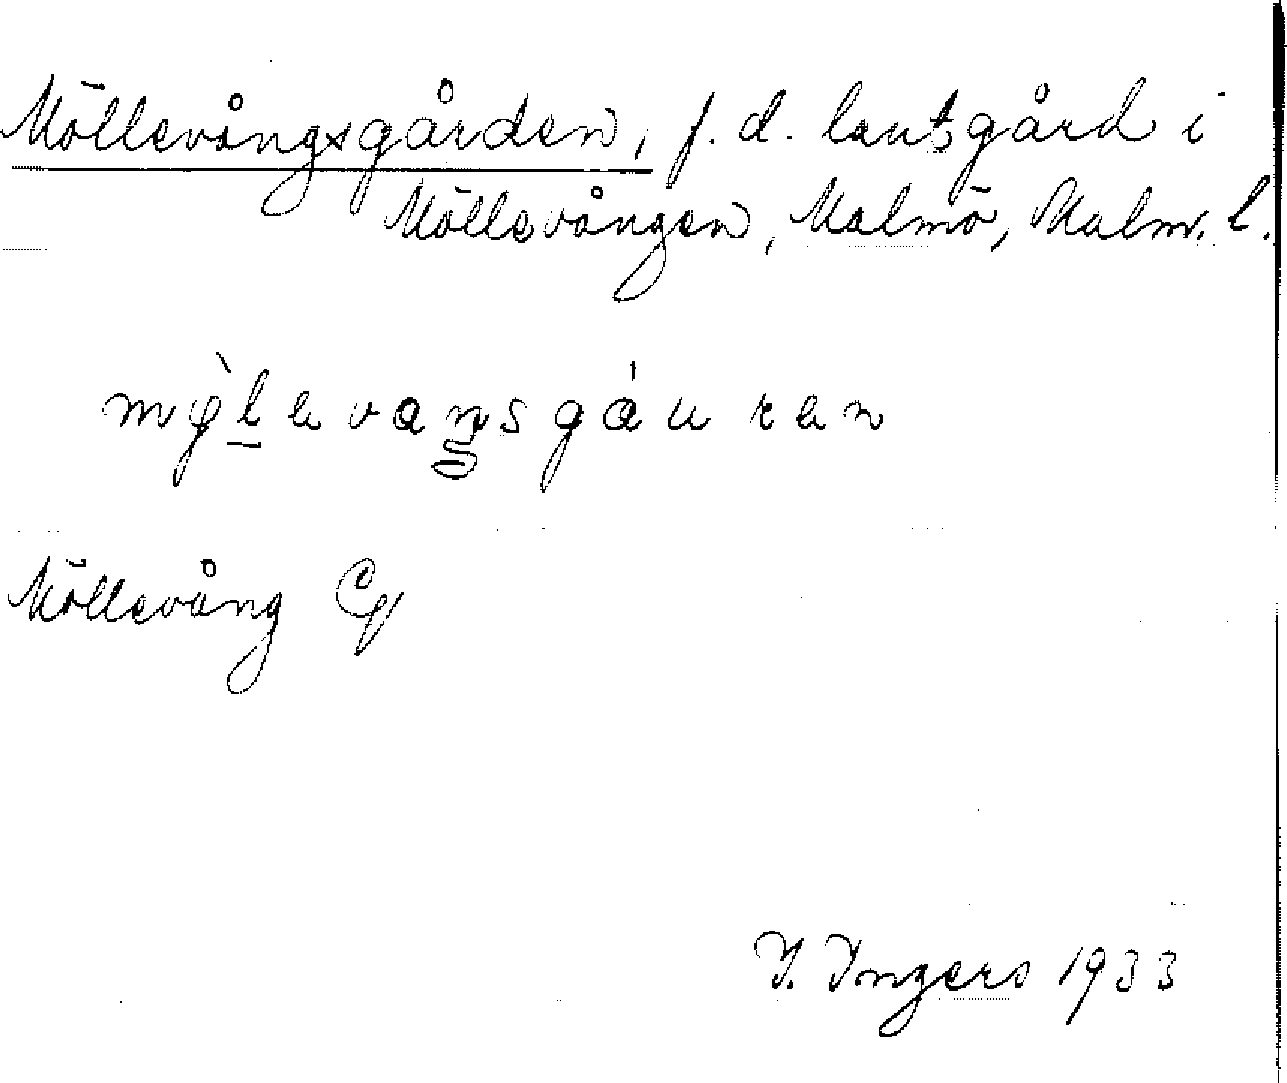 Möllevångsgården, f. d. lantgård i
Möllevången, Malmö, Malm. l.
Möllevång
I. Ingers 1933